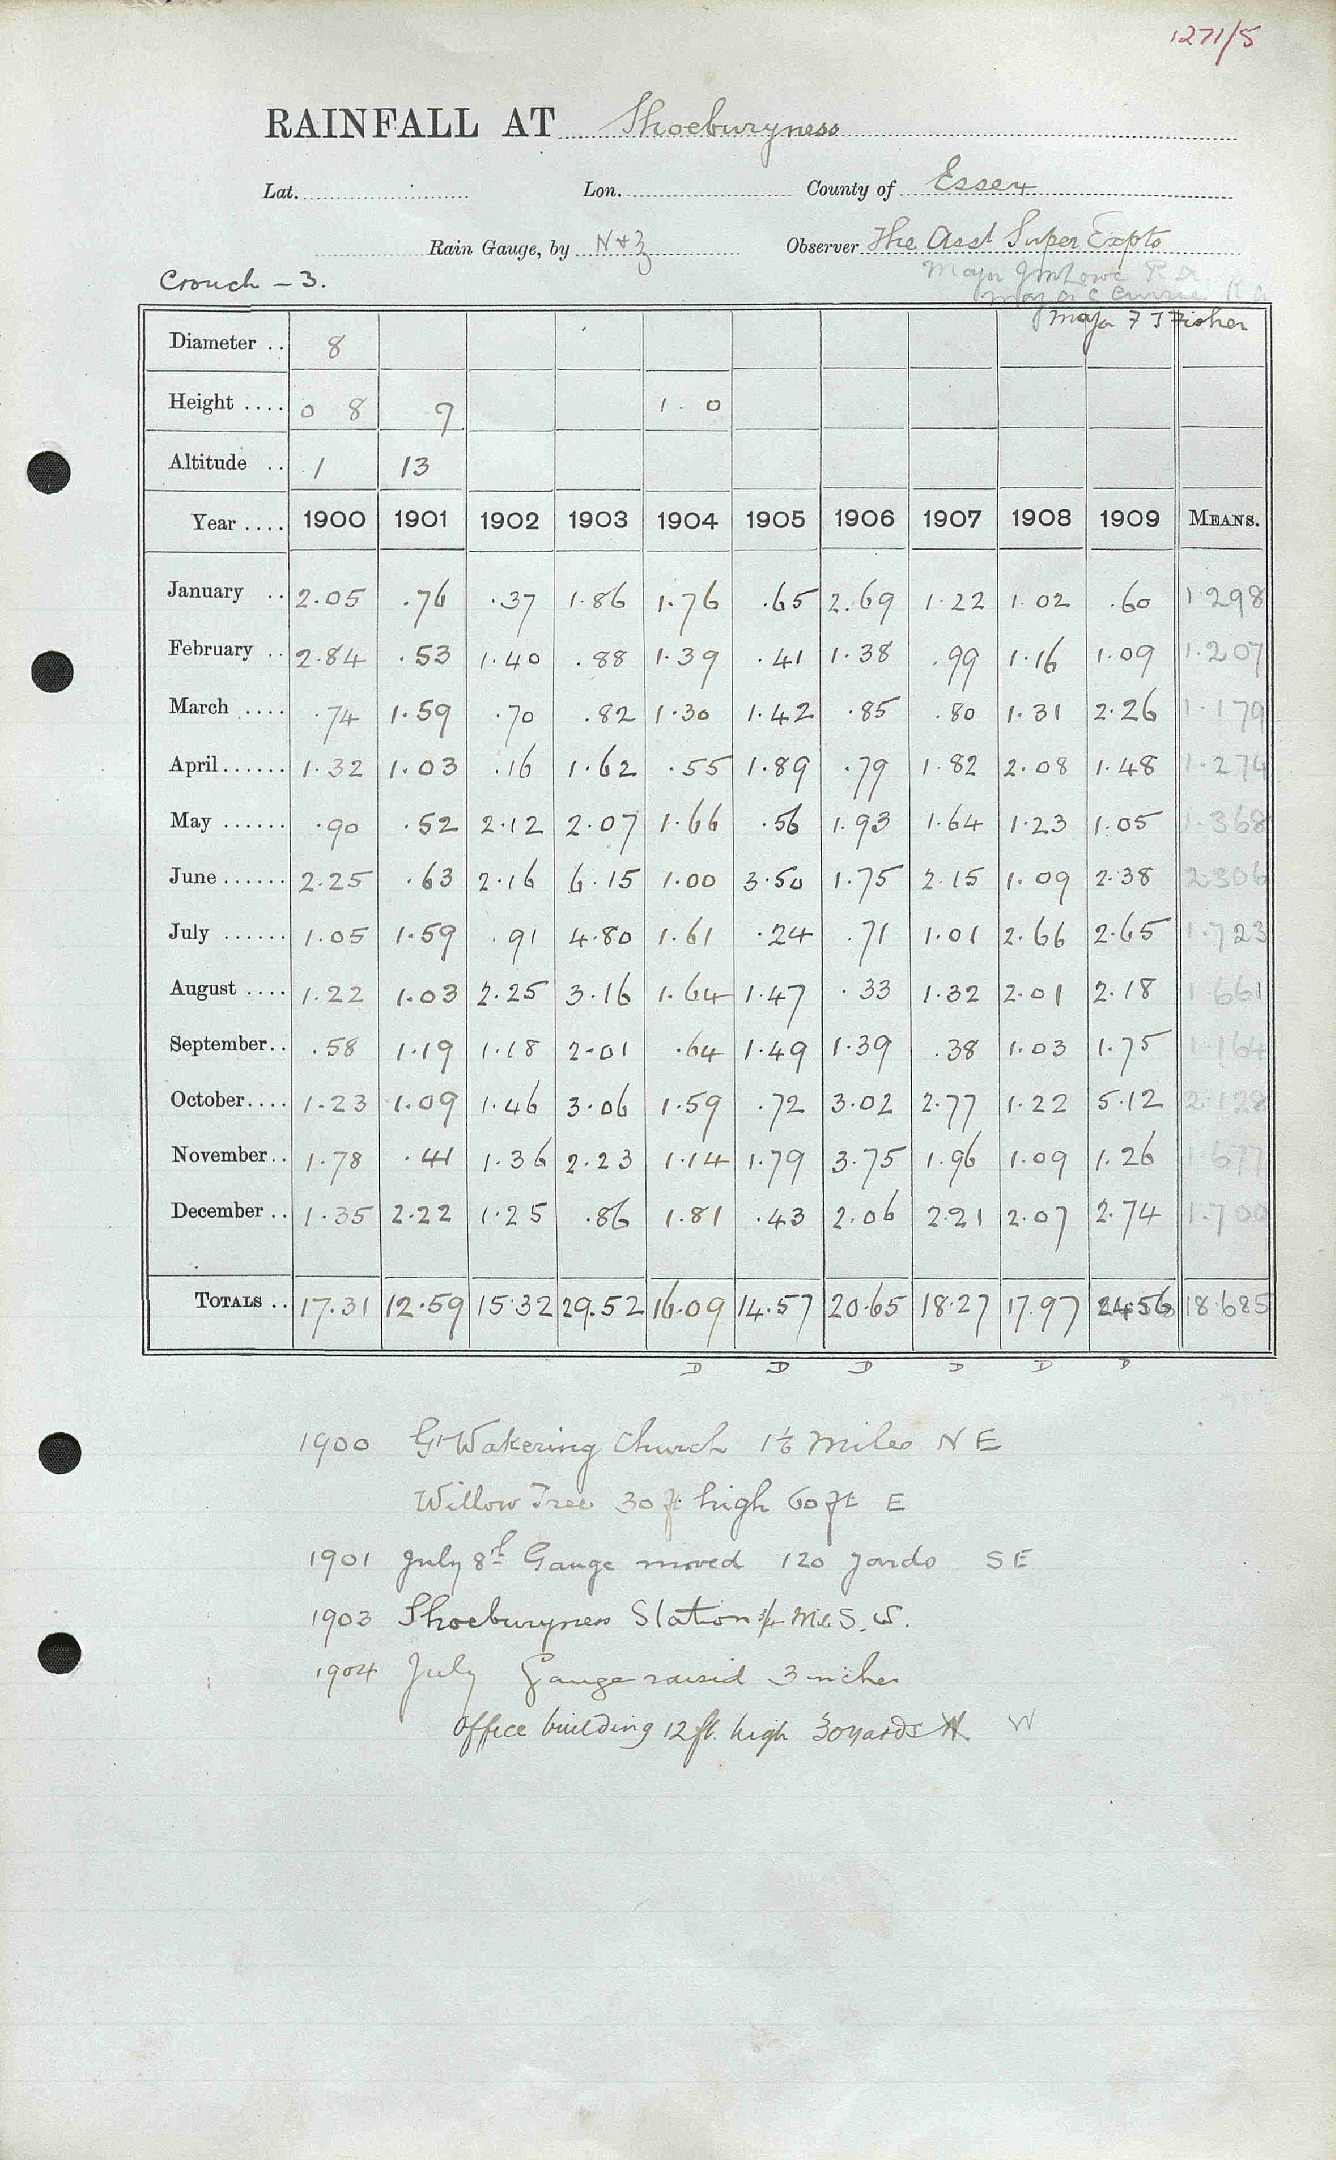 1271/5
RAINFALL AT Shoeburyness
Lat. Lon. County of Essex
Rain Gauge, by N & Z Observer The Asst Super Expts
Major
Crouch – 3. Major
Major F J Fisher
Diameter .. 8
Height .... 0 8 9 1. 0
Altitude .. 1 13
Year .... 1900 1901 1902 1903 1904 1905 1906 1907 1908 1909 MEANS.
January .. 2.05 .76 .37 1.86 1.76 .65 2.69 1.22 1.02 .60 1.298
February .. 2.84 .53 1.40 .88 1.39 .41 1.38 .99 1.16 1.09 1.207
March .... .74 1.59 .70 .82 1.30 1.42 .85 .80 1.31 2.26 1.179
April...... 1.32 1.03 .16 1.62 .55 1.89 .79 1.82 2.08 1.48 1.274
May ...... .90 .52 2.12 2.07 1.66 .56 1.93 1.64 1.23 1.05 1.368
June ...... 2.25 .63 2.16 6.15 1.00 3.50 1.75 2.15 1.09 2.38 2.306
July ...... 1.05 1.59 .91 4.80 1.61 .24 .71 1.01 2.66 2.65 1.723
August .... 1.22 1.03 2.25 3.16 1.64 1.47 .33 1.32 2.01 2.18 1.661
September.. .58 1.19 1.18 2.01 .64 1.49 1.39 .38 1.03 1.75 1.164
October.... 1.23 1.09 1.46 3.06 1.59 .72 3.02 2.77 1.22 5.12 2.128
November.. 1.78 .41 1.36 2.23 1.14 1.79 3.75 1.96 1.09 1.26 1.677
December .. 1.35 2.22 1.25 .86 1.81 .43 2.06 2.21 2.07 2.74 1.700
TOTALS .. 17.31 12.59 15.32 29.52 16.09 14.57 20.65 18.27 17.97 24.56 18.685
D D D D D D
1900 Gt Wakering Church Miles N E
Willow Tree 30 ft high 60 ft E
1901 July 8th Gauge moved 120 yards S E
1903 Shoeburyness Station 3/4 Mile S. W.
1904 July Gauge raised 3 inches
Office building 12 ft. high 30 yards W